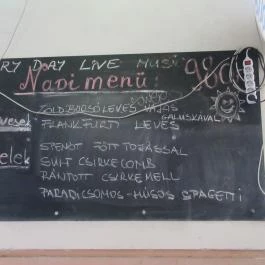 RY DAY LIVE MUSIC
Napi menü: 980
ZÖLDBORSÓLEVES VAJAS
GALUSKÁVAL
vesek FRANKFURTI LEVES
SPENÓT FŐTT TOJÁSSAL
elek SÜLT CSIRKECOMB
RÁNTOTT CSIRKEMELL
PARADICSOMOS-HÚSOS SPAGETTI